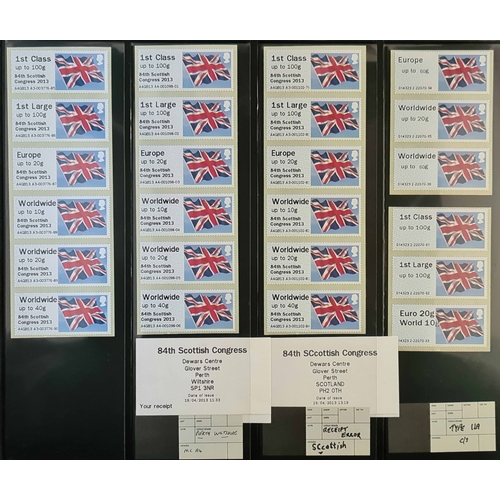 1st Class
up to 100g
84th Scottish
Congress 2013
1st Large
up to 100g
84th Scottish
Congress 2013
Europe
up to 20g
84th Scottish
Congress 2013
Worldwide
up to 10g
84th Scottish
Congress 2013
Worldwide
up to 20g
84th Scottish
Congress 2013
Worldwide
up to 40g
84th Scottish
Congress 2013
1st Class
up to 100g
84th Scottish
Congress 2013
1st Large
up to 100g
84th Scottish
Congress 2013
Europe
up to 20g
84th Scottish
Congress 2013
Worldwide
up to 10g
84th Scottish
Congress 2013
Worldwide
up to 20g
84th Scottish
Congress 2013
Worldwide
up to 40g
84th Scottish
Congress 2013
1st Class
up to 100g
84th Scottish
Congress 2013
1st Large
up to 100g
84th Scottish
Congress 2013
Europe
up to 20g
84th Scottish
Congress 2013
Worldwide
up to 10g
84th Scottish
Congress 2013
Worldwide
up to 20g
84th Scottish
Congress 2013
Worldwide
up to 40g
84th Scottish
Congress 2013
Europe
up to
Worldwide
up to 20g
Worldwide
up to
1st Class
up to 100g
1st Large
up to 100g
Euro 20g
World 10g
84th Scottish Congress
Dewars Centre
Glover Street
Perth
Wiltshire
SP1 3NR
Date of issue
Your receipt
84th SCcottish Congress
Dewars Centre
Glover Street
Perth
SCOTLAND
PH2 0TH
Date of issue
RECEIPT
ERROR
SCcottish
TYPE